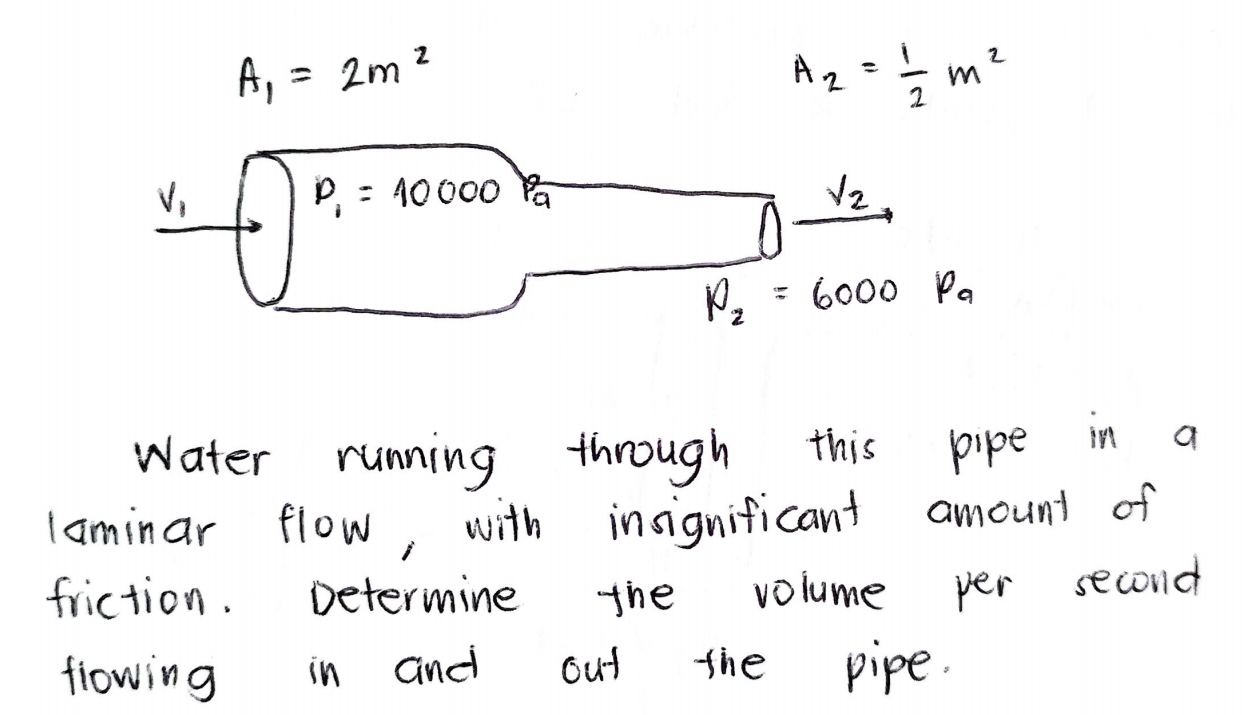 A₁ = 2m² A₂ = 1/2 m²
V₁ P₁ = 10000 Pa V₂
P₂ = 6000 Pa
Water running through this pipe in a
laminar flow, with insignificant amount of
friction. Determine the volume per second
flowing in and out the pipe.